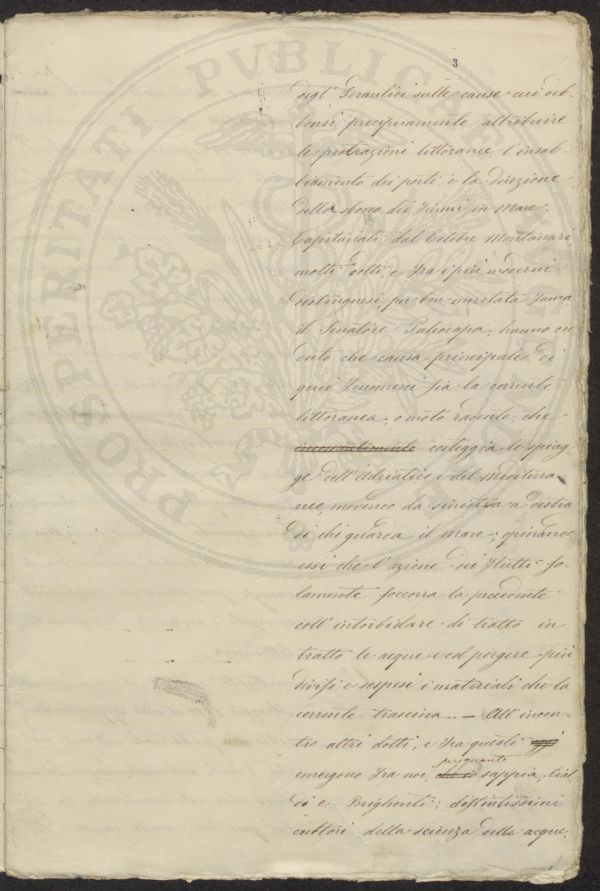 3
degl' Idraulici sulle cause cui deb-
bonsi precipuamente attribuire
le protrazioni littoranee, l'insab-
biamento dei porti e la direzione
dello sbocco dei fiumi in mare.
Capitanati dal Celebre Montanari
molti dotti, e fra i più moderni
distinguesi per ben meritata fama
il Senatore Paleocapa, hanno cre
duto che causa principale di
quei fenomeni sia la corrente
littoranea, o moto radente, che
incessantemente costeggia le spiag-
ge dell'Adriatico e del Mediterra-
neo movendo da sinistra a destra
di chi guarda il mare; opinando
essi che l'azione dei flutti so-
lamente soccorra la precedente
coll'intorbidare di tratto in
tratto le acque ed porgere più
divisi e sospesi i materiali che la
corrente trascina. — All'incon-
tro altri dotti, e fra questi
per quanto
emergono fra noi, sappia, Cial
di e Brighenti; distintissimi
cultori della scienza delle acque,
PROSPERITATI PVBLICAE